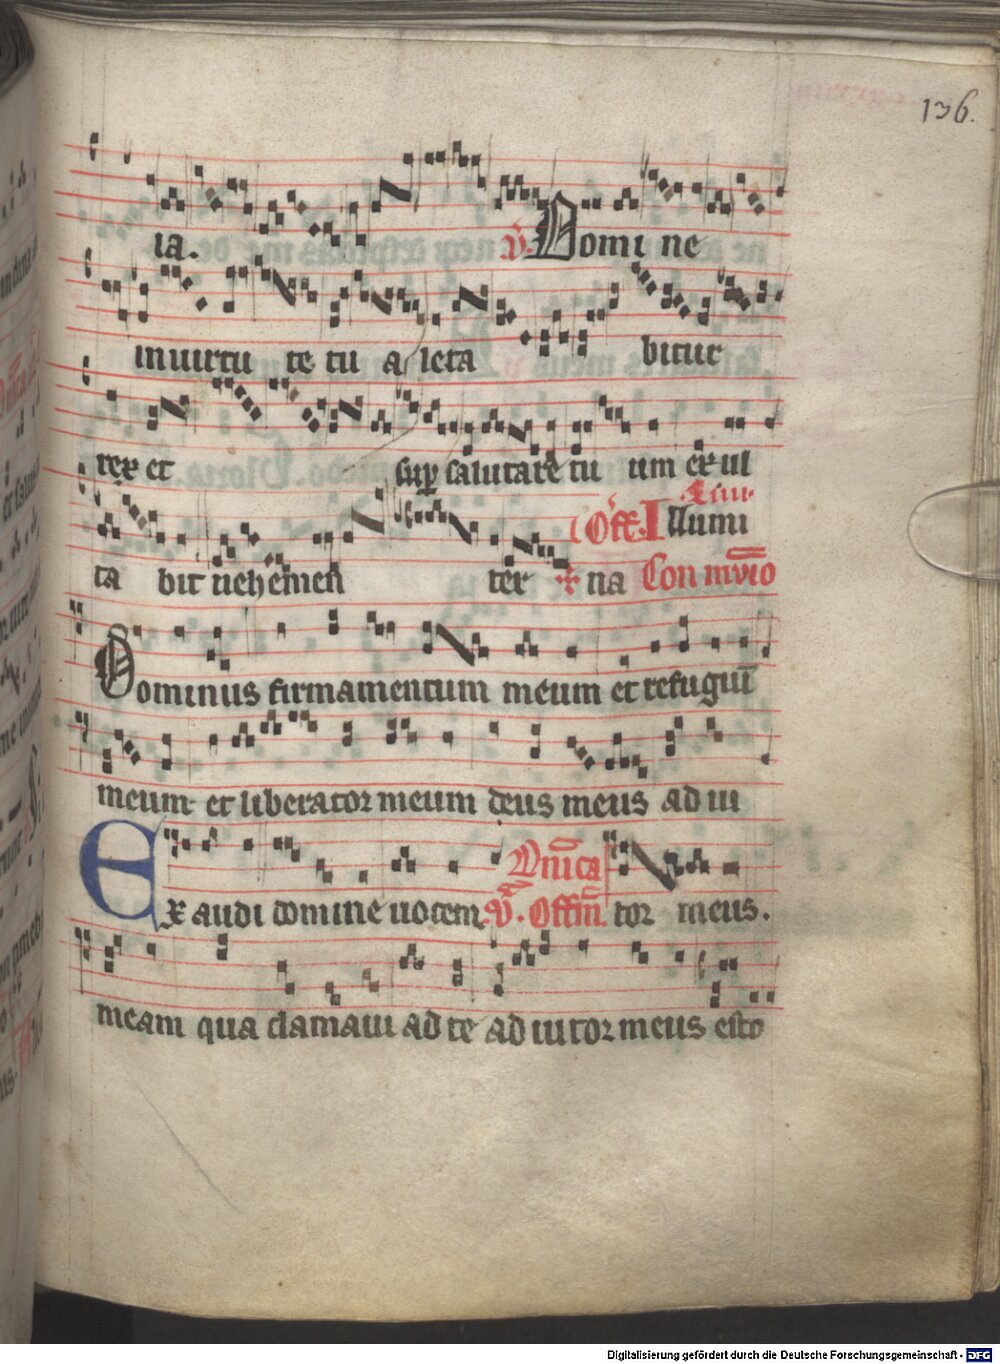 136.
ia. v̄. Domi ne
in uirtu te tu a leta bitur
rex et sup salutare tu um ex ul
ta bit uehemen ter na Off. Illumi
Con mu̅io
Dominus firmamentum meum et refugiū
meum et liberator meum deus meus ad iu
Ex audi domine uocem Dn̄ica v̄. Offm̄. tor meus.
meam qua clamaui ad te ad iutor meus esto
Digitalisierung gefördert durch die Deutsche Forschungsgemeinschaft - DFG